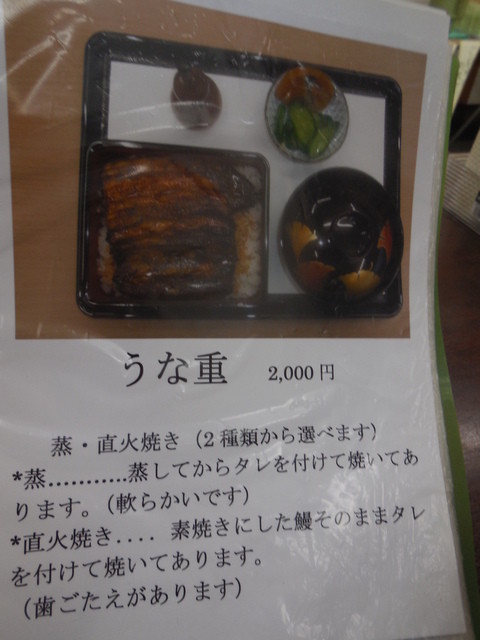 うな重 2,000円
蒸・直火焼き（2種類から選べます）
*蒸............蒸してからタレを付けて焼いてあ
ります。（軟らかいです）
*直火焼き.... 素焼きにした鰻そのままタレ
を付けて焼いてあります。
（歯ごたえがあります）